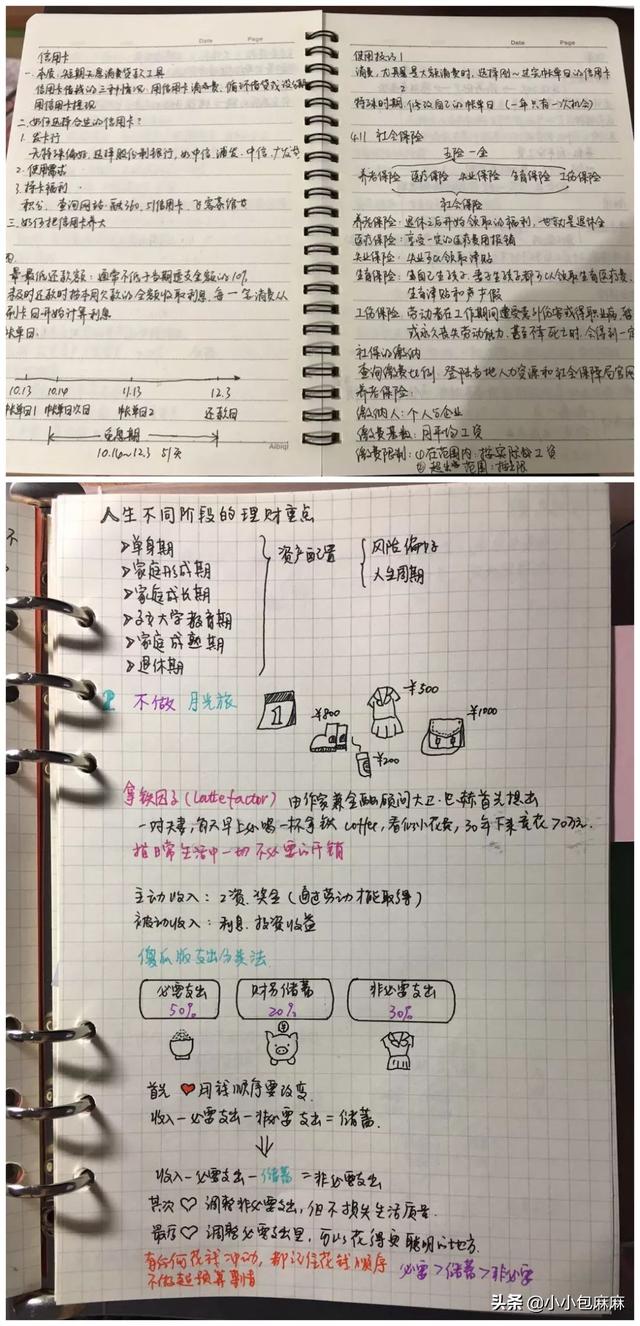 Date Page
信用卡
一.本质:短期无息消费贷款工具
信用卡借钱的三种情况:用信用卡消费,循环借贷或没分期
用信用卡提现
二.如何选择合适的信用卡?
1.发卡行
无特殊偏好,选择股份制银行,如中信、浦发、中信、广发等
2.使用需求
3.持卡福利
积分,查询网站:融360,51信用卡,飞客茶馆
三.如何把信用卡养大
最低还款额:通常不低于当期透支金额的10%
开始计算利息
帐单日:
10.13 10.14 11.13 12.3
帐单日1 帐单日次日 帐单日2 还款日
免息期
10.14~12.3 51天
Aibiqi
Date Page
使用技巧1
消费,尤其是大额消费时,选择刚过完帐单日的信用卡
2
特殊时期,修改自己的帐单日(一年只有一次机会)
4.11 社会保险
五险一金
养老保险 医疗保险 失业保险 生育保险 工伤保险
社会保险
养老保险:退休之后开始领取的福利,也就是退休金
医疗保险:享受一定的医疗费用报销
失业保险:失业可以领取津贴
生育保险:自己生孩子,妻子生孩子都可以领取生育医疗费、
生育津贴和产假
工伤保险:劳动者在工作期间遭受意外伤害或得职业病,暂
或永久丧失劳动能力,甚至不幸死亡时,会得到一定
社保的缴纳
查询缴费比例,登陆当地人力资源和社会保障局官网
养老保险:
缴纳人:个人与企业
缴费基数:月平均工资
缴费限制:①在范围内:按实际的工资
②超出范围:按上限
人生不同阶段的理财重点
➢单身期
➢家庭形成期
➢家庭成长期
➢子女大学教育期
➢家庭成熟期
➢退休期
资产配置
风险偏好
人生周期
2 不做 月光族
1
¥800
¥200
¥500
¥1000
拿铁因子(Latte factor) 由作家兼金融顾问大卫·巴赫首先提出
一对夫妻,每天早上必喝一杯拿铁 coffee,看似小花费,30年下来竟花70万元.
指日常生活中一切不必要的开销
主动收入:工资.奖金(通过劳动才能取得)
被动收入:利息.投资收益
傻瓜版支出分类法
必要支出 50%
财务储蓄 20%
非必要支出 30%
首先 ❤ 用钱顺序要改变.
收入-必要支出-非必要支出=储蓄.
⇓
收入-必要支出-储蓄=非必要支出
其次 ♡ 调整非必要支出,但不损失生活质量.
最后 ♡ 调整必要支出里,可以花得更聪明的地方.
有任何花钱冲动,都记住花钱顺序
必要>储蓄>非必要
不做超预算事情
头条 @小小包麻麻